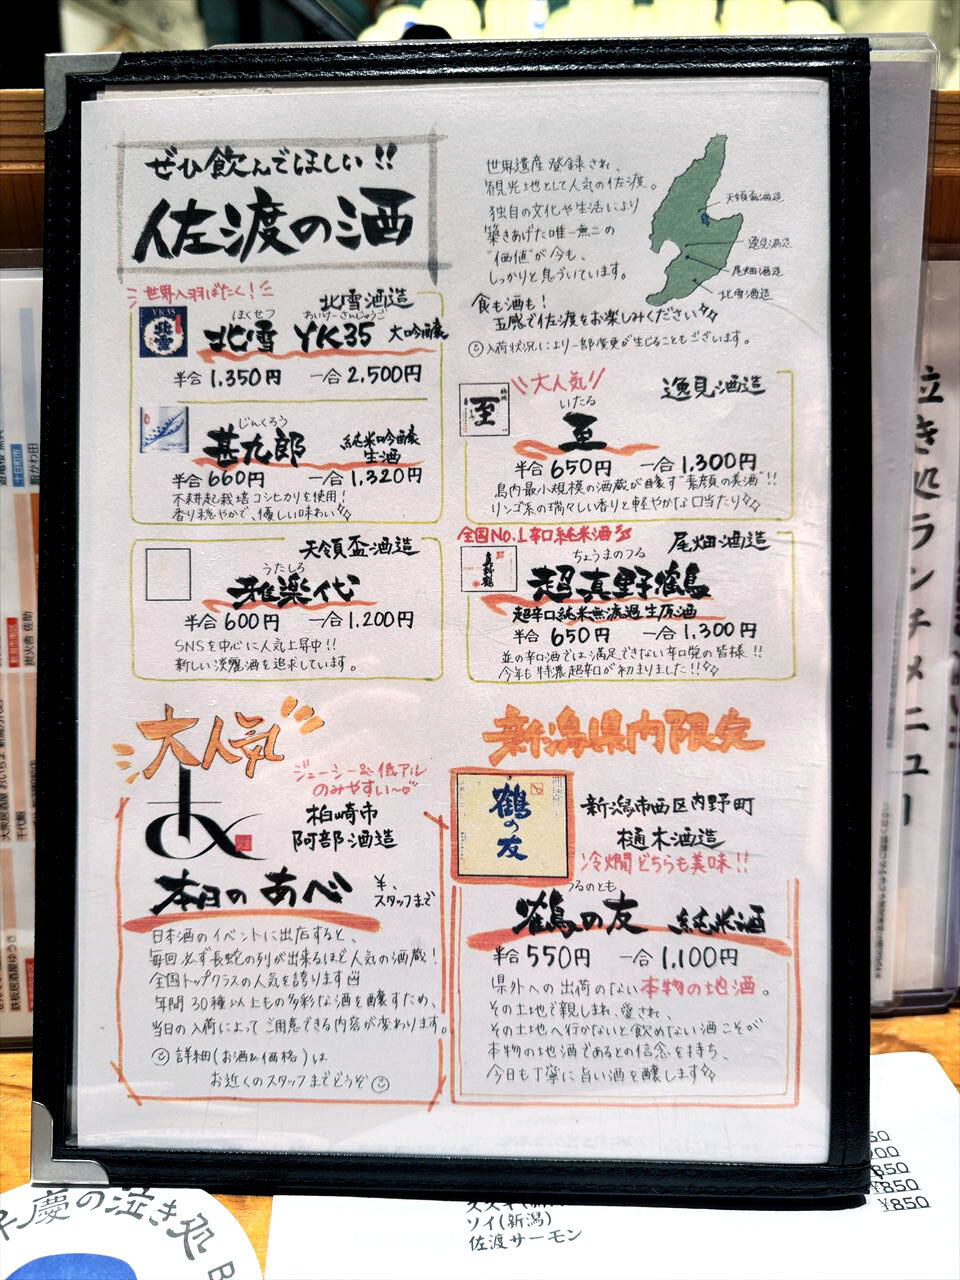 ぜひ飲んでほしい!!
佐渡の酒
世界遺産登録され、
観光地として人気の佐渡。
独自の文化や生活により
築きあげた唯一無二の
"価値"が今も、
しっかりと息づいています。
食も酒も!
五感で佐渡をお楽しみください
入荷状況により一部変更が生じることもございます。
天領盃酒造
逸見酒造
尾畑酒造
北雪酒造
世界へ羽ばたく!
北雪酒造
YK35
ほくせつ
おいけーさんじゅうご
北雪 YK35 大吟醸
半合 1,350円 一合 2,500円
じんくろう
甚九郎 純米吟醸
生酒
半合 660円 一合 1,320円
不耕起栽培コシヒカリを使用!
香り穏やかで、優しい味わい
大人気!!
逸見酒造
至
いたる
至
半合 650円 一合 1,300円
島内最小規模の酒蔵が醸す"素顔の美酒"!!
リンゴ系の瑞々しい香りと軽やかな口当たり
天領盃酒造
うたしろ
雅楽代
半合 600円 一合 1,200円
SNSを中心に人気上昇中!!
新しい淡麗酒を追求しています。
全国No.1辛口純米酒
尾畑酒造
真野鶴
ちょうまのつる
超真野鶴
超辛口純米無濾過生原酒
半合 650円 一合 1,300円
並の辛口酒では満足できない辛口党の皆様!!
今年も特濃超辛口が初まりました!!
大人気
ジューシー&低アル
のみやすい〜♡
柏崎市
阿部酒造
本日の あべ
¥、
スタッフまで
日本酒のイベントに出店すると、
毎回必ず長蛇の列が出来るほど人気の酒蔵!
全国トップクラスの人気を誇ります
年間30種以上もの多彩な酒を醸すため、
当日の入荷によってご用意できる内容が変わります。
詳細(お酒&価格)は
お近くのスタッフまでどうぞ
新潟県内限定
鶴の友
新潟市西区内野町
樋木酒造
冷燗どちらも美味!!
つるのとも
鶴の友 純米酒
半合 550円 一合 1,100円
県外への出荷のない本物の地酒。
その土地で親しまれ、愛され、
その土地へ行かないと飲めない酒こそが
本物の地酒であるとの信念を持ち、
今日も丁寧に旨い酒を醸します
泣き処ランチメニュー
慶の泣き処
850
¥850
¥850
ソイ(新潟)
佐渡サーモン